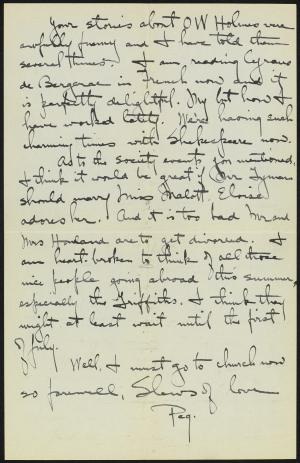 Your stories about O W Holmes were
awfully funny and I have told them
several times. I am reading Cyrano
de Bergerac in French now and it
is perfectly delightful. My but how I
have worked lately. We're having such
charming times with Shakespeare now.
As to the society events you mentioned,
I think it would be great if Orr Lyman
should marry Miss Malott. Eloise
adores her. And it is too bad Mr and
Mrs Harland are to get divorced. I
am heart-broken to think of all those
nice people going abroad this summer,
especially the Griffiths. I think they
might at least wait until the first
of July.
Well, I must go to church now
so farewell, Slews of love
Peg.